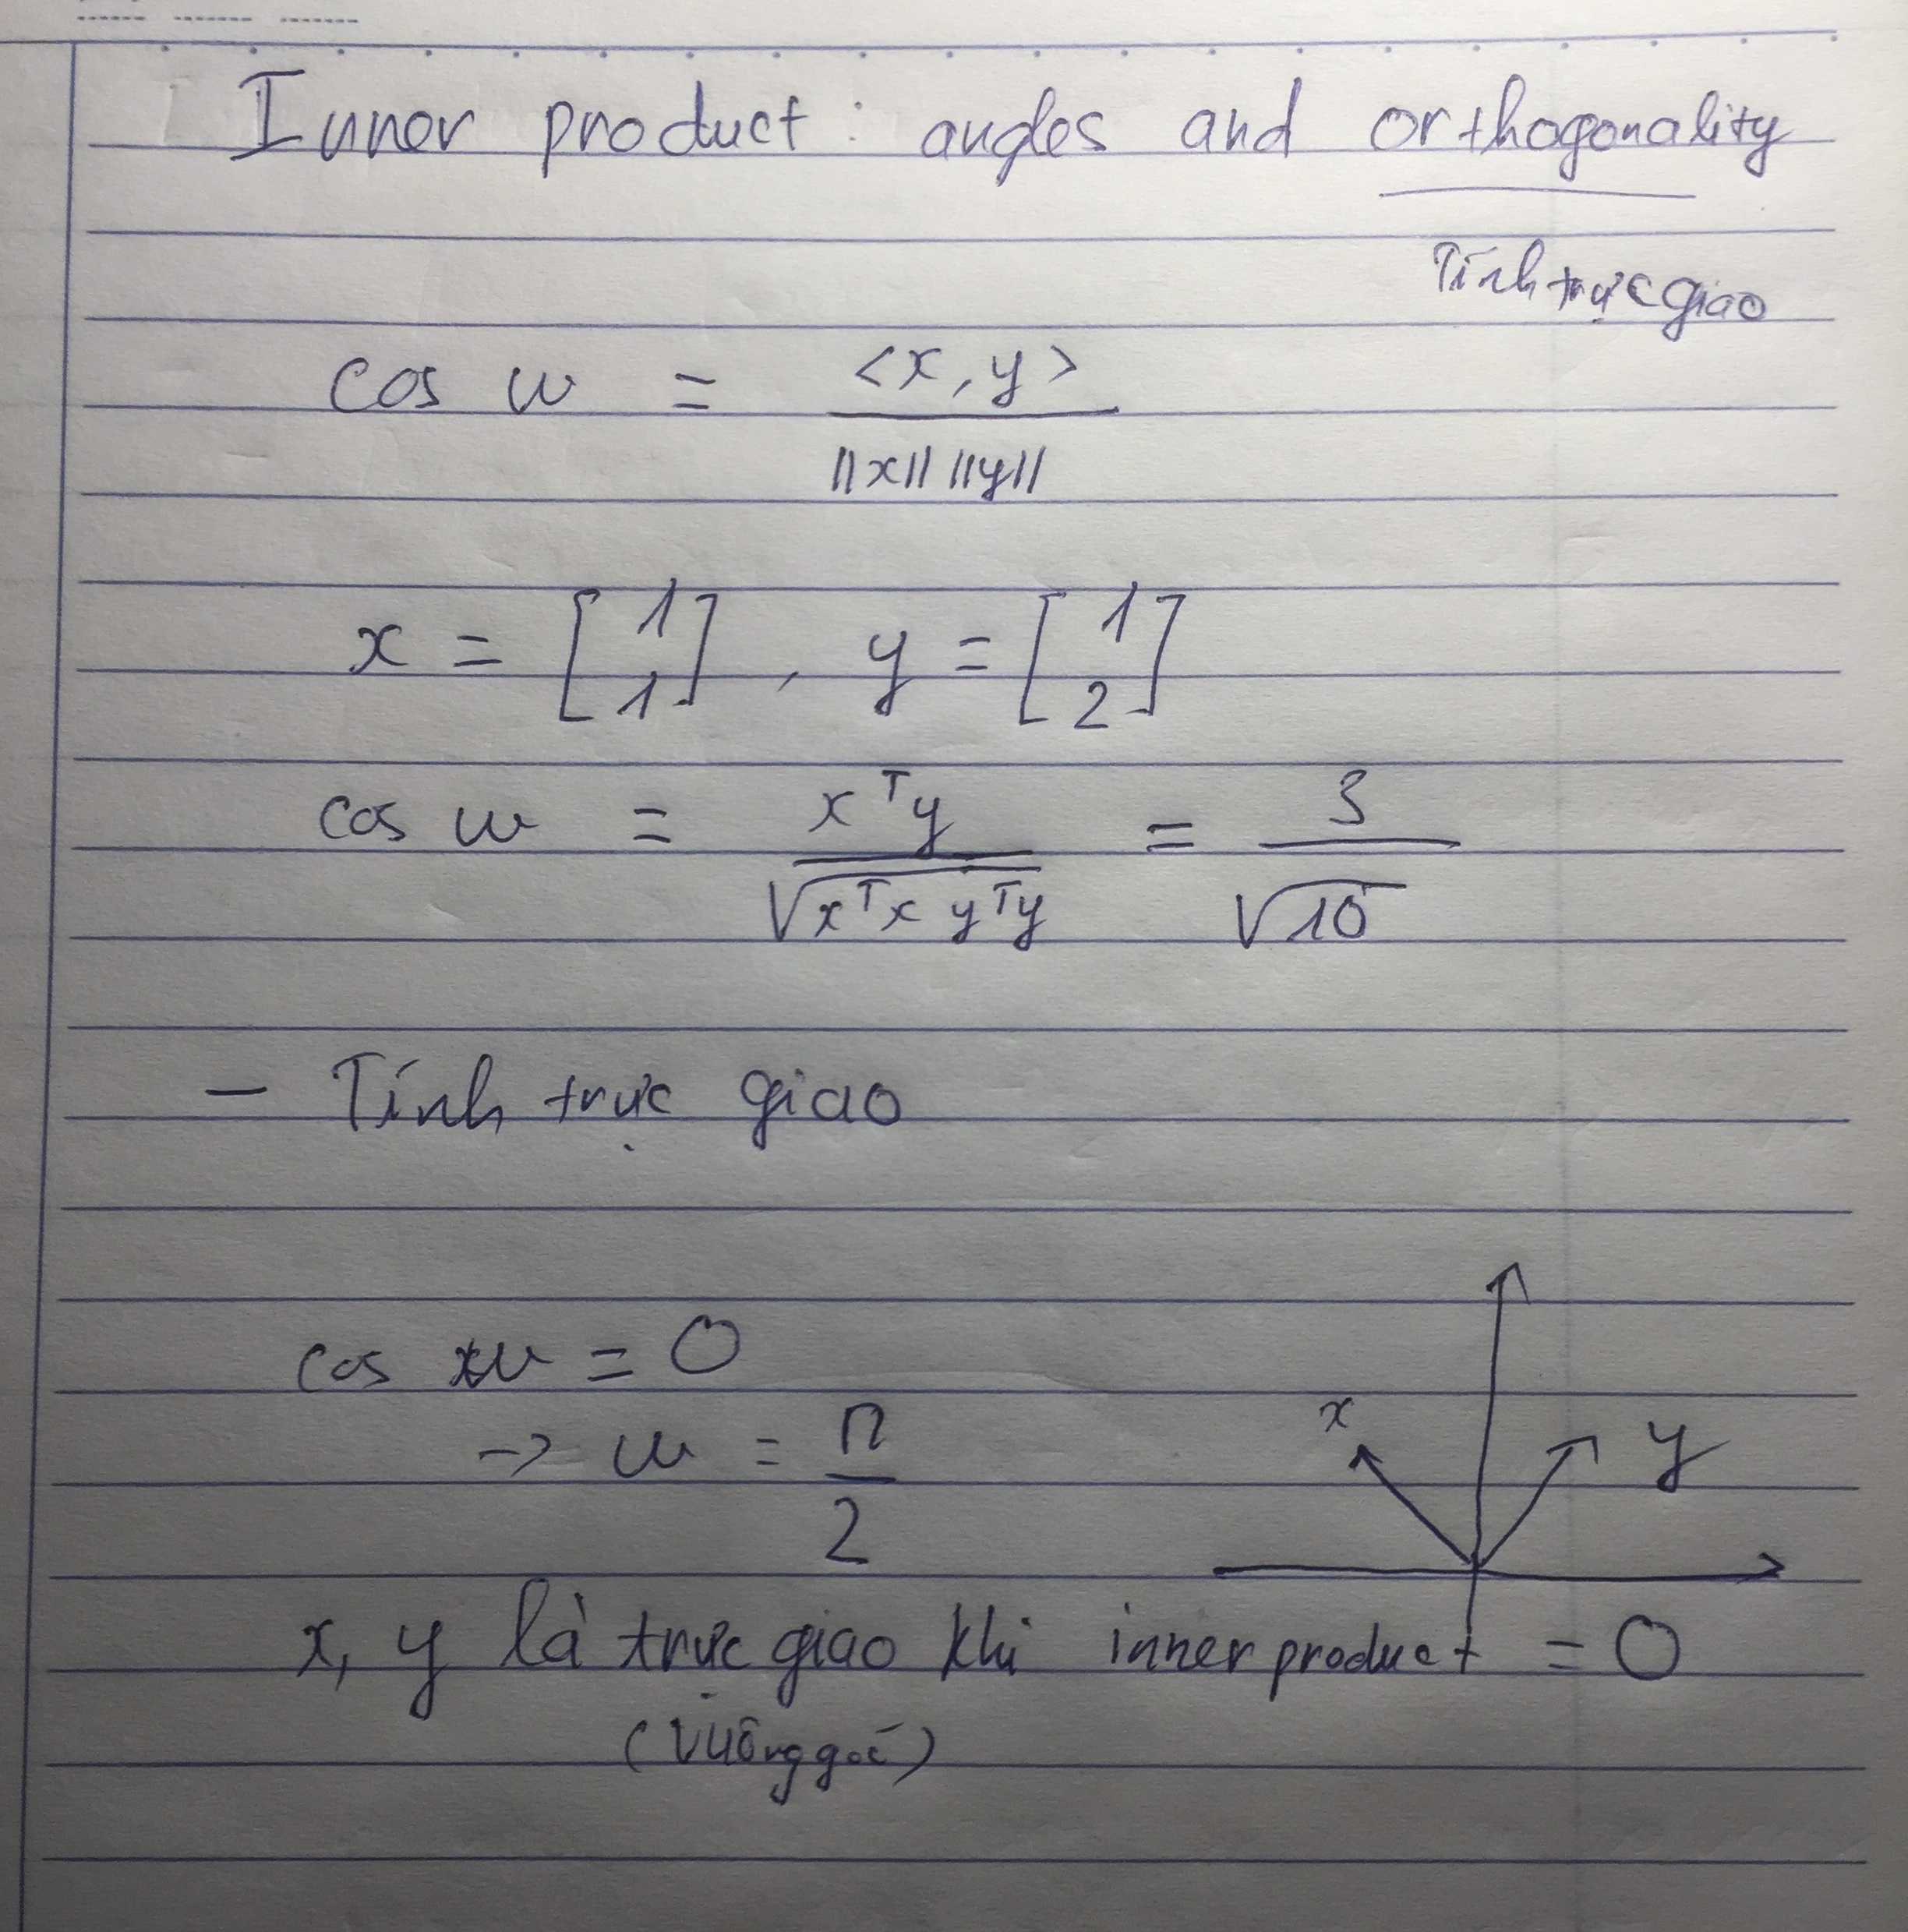 Inner product: angles and orthogonality
Tính trực giao
cos w = <x, y> / ||x|| ||y||
x = [1 1], y = [1 2]
cos w = xᵀy / √xᵀx yᵀy = 3 / √10
- Tính trực giao
cos w = 0
→ w = π / 2
x y
x, y là trực giao khi inner product = 0
(vuông góc)